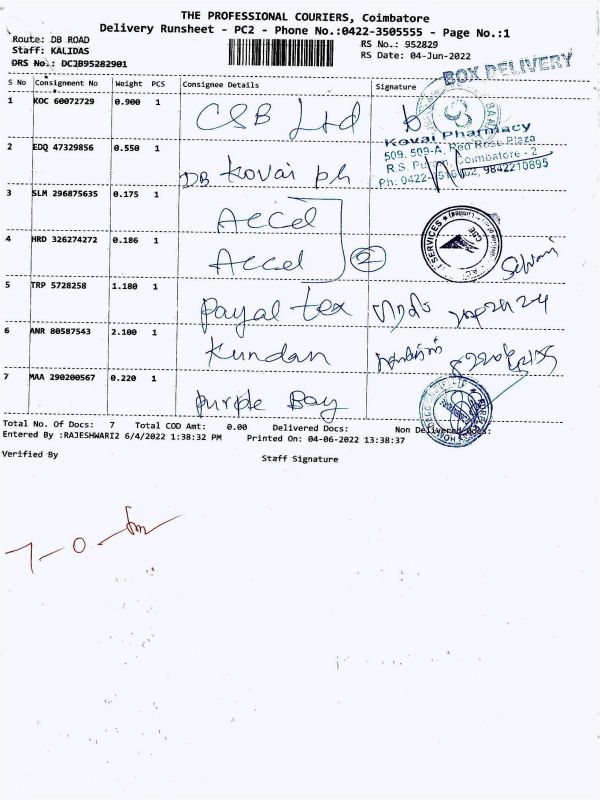 THE PROFESSIONAL COURIERS, Coimbatore
Delivery Runsheet - PC2 - Phone No.:0422-3505555 - Page No.:1
Route: DB ROAD
Staff: KALIDAS
DRS No.: DC3B95282901
RS No.: 952829
RS Date: 04-Jun-2022
BOX DELIVERY
S No Consignment No Weight PCS Consignee Details Signature
1 KOC 60072729 0.900 1 CSB Ltd
Kovai Pharmacy
509, 509-A, Red Rose Plaza
R.S. Coimbatore - 2
Ph: 0422- 9842210895
2 EDQ 47329856 0.550 1 DB Kovai ph
3 SLM 296875635 0.175 1 Accel
4 HRD 326274272 0.186 1 Accel 2
SERVICES
5 TRP 5728258 1.180 1 Payal tex
6 ANR 80587543 2.100 1 Kundan
7 MAA 290200567 0.220 1 Purple Bay
Total No. Of Docs: 7 Total COD Amt: 0.00 Delivered Docs: Non Delivered Docs:
Entered By :RAJESHWARI2 6/4/2022 1:38:32 PM Printed On: 04-06-2022 13:38:37
Verified By Staff Signature
7-0-